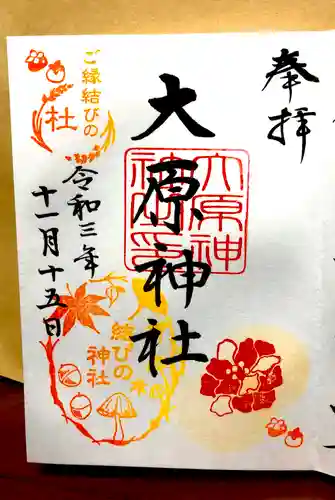 奉拝
大原神社
大原神
神社印
ご縁結びの
社
令和三年
十一月十五日
結びの
神社